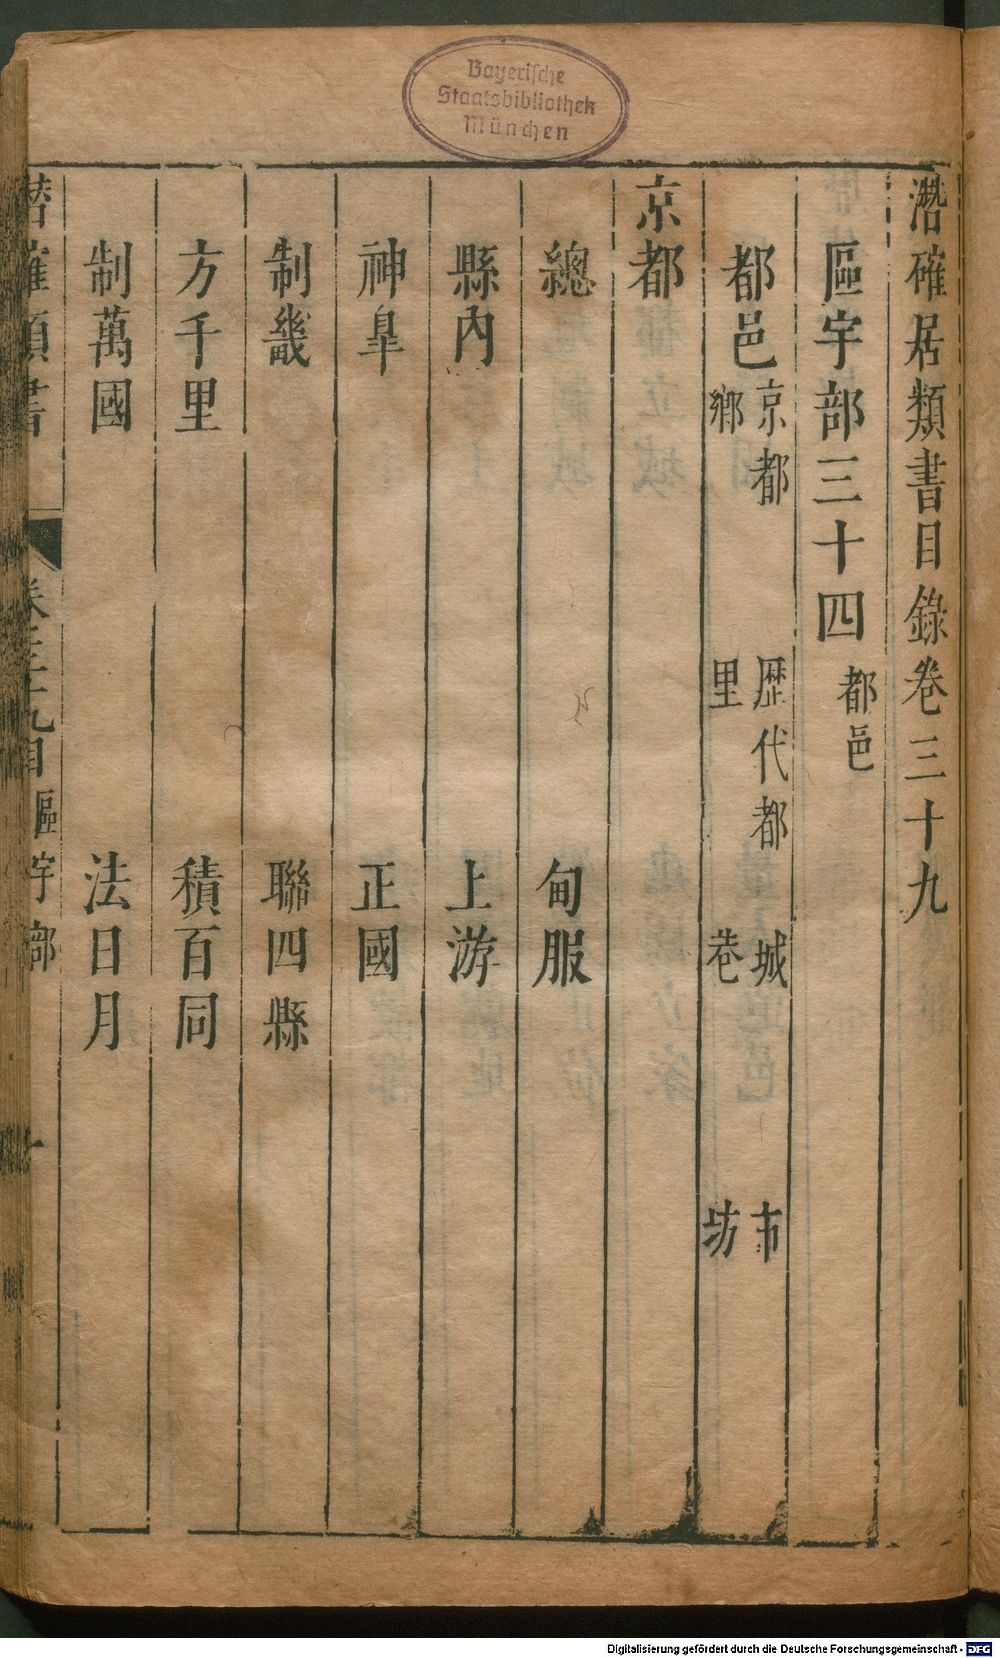 Bayerische
Staatsbibliothek
München
潛確居類書目錄卷三十九
區宇部三十四 都邑
都邑 京都 歷代都 城 市
鄉 里 巷 坊
京都
總 甸服
縣內 上游
神臯 正國
制畿 聯四縣
方千里 積百同
制萬國 法日月
潛確類書 卷三十九目 區宇部 一
Digitalisierung gefördert durch die Deutsche Forschungsgemeinschaft - DFG